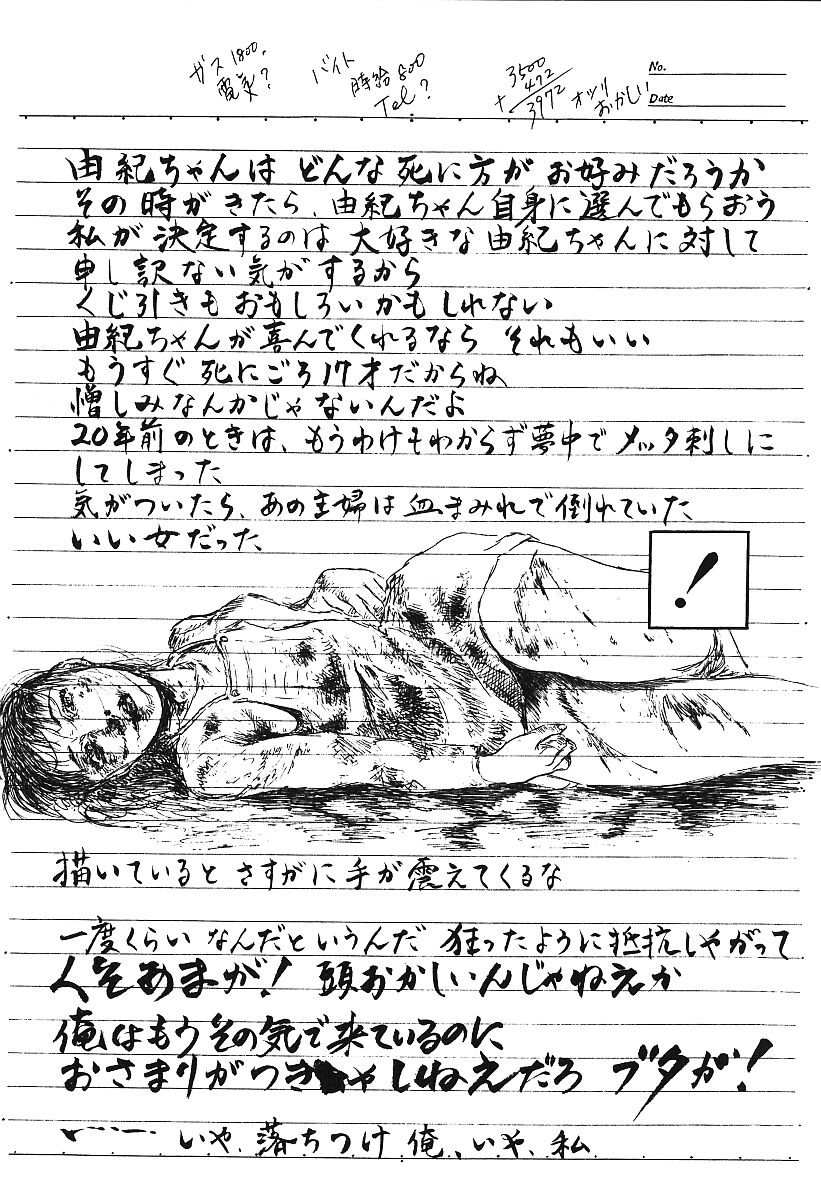 ガス1800.
電気?
バイト
時給800
Tel?
3500
+ 472
3972
オツリ
おかしい
No.
Date
由紀ちゃんは どんな死に方が お好みだろうか
その時がきたら、由紀ちゃん自身に選んでもらおう
私が決定するのは 大好きな由紀ちゃんに対して
申し訳ない気がするから
くじ引きも おもしろいかもしれない
由紀ちゃんが喜んでくれるなら それもいい
もうすぐ 死にごろ17才だからね
憎しみなんかじゃないんだよ
20年前のときは、もうわけもわからず夢中で メッタ刺しに
してしまった
気がついたら、あの主婦は血まみれで倒れていた
いい女だった
!
描いていると さすがに手が震えてくるな
一度くらい なんだというんだ 狂ったように抵抗しやがって
くそあまが! 頭おかしいんじゃねえか
俺はもうその気で来ているのに
おさまりがつきゃしねえだろ ブタが!
いや、落ちつけ 俺、いや、私